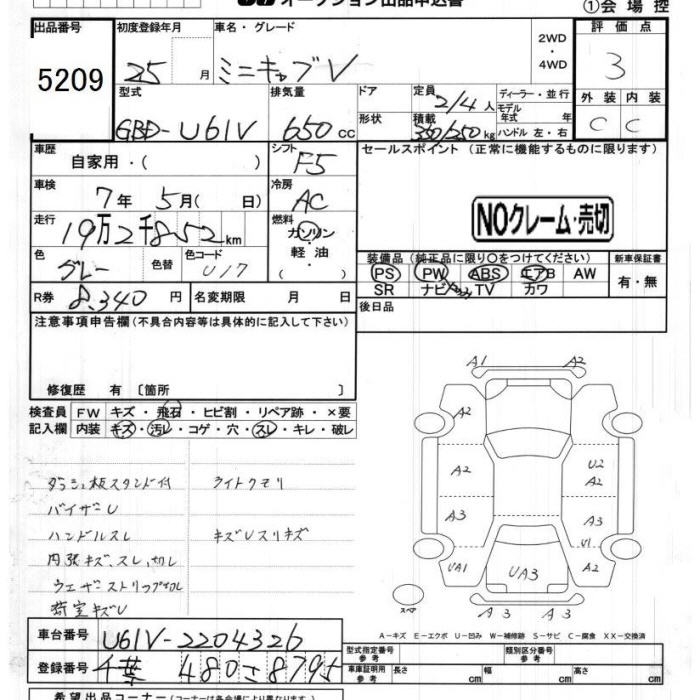 オークション出品申込書
①会場控
出品番号
5209
初度登録年月
25 月
車名・グレード
ミニキャブV
2WD
・
4WD
評価点
3
型式
GBD-U61V
排気量
650 cc
ドア
形状
定員
2/4人
積載
350/250kg
ディーラー・並行
モデル
年式 年
ハンドル 左・右
外装 内装
C C
車歴
自家用・( )
シフト
F5
セールスポイント (正常に機能するものに限ります)
車検
7年 5月( 日)
冷房
AC
NOクレーム・売切
走行
19万2千852km
燃料
ガソリン
・
軽油
色
グレー
色替
色コード
U17
装備品 (純正品に限り○をつけてください)
新車保証書
PS PW ABS エアB AW
SR ナビ TV カワ
有・無
R券 8,340円
名変期限 月 日
後日品
注意事項申告欄(不具合内容等は具体的に記入して下さい)
修復歴 有 〔箇所 〕
検査員
記入欄
FW キズ・飛石・ヒビ割・リペア跡・×要
内装 キズ・汚レ・コゲ・穴・スレ・キレ・破レ
ダッシュ板スタンド付 ライトクモリ
バイザーU
ハンドルスレ キズUスリキズ
内張キズ、スレ、切レ
ウェザーストリップ切レ
荷室キズU
A1 A2
A2
A2 U2
A2
A3 A3
U1
UA1 UA3 A2
A3 A3
スペア
A-キズ E-エクボ U-凹み W-補修跡 S-サビ C-腐食 XX-交換済
車台番号
U61V-2204326
登録番号
千葉 480 さ 8795
型式指定番号
参考
類別区分番号
参考
車庫証明用
参考
長さ cm 幅 cm 高さ cm
希望出品コーナー(コーナーは各会場により異なります)